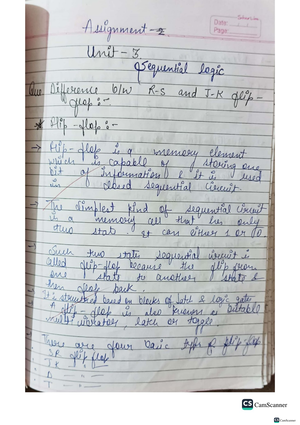 Date:
Page:
Assignment - 2
Unit - 3
Sequential logic
Que Difference b/w R-S and J-K flip-
flop :-
* Flip-flop :-
→ Flip-flop is a memory element
which is capable of storing one
bit of Information & it is used
in closed sequential circuit.
→ The simplest kind of sequential circuit
is a memory cell that has only
two state It can either 1 or 0
Such two state sequential circuit is
called flip-flop because the flip from
one state to another state &
then flop back.
→ It is structured based on blocks of latch & logic gate
A flip-flop is also known as
latch or toggle.
There are four basic types of flip flop
SR flip flop
CS CamScanner
CS CamScanner